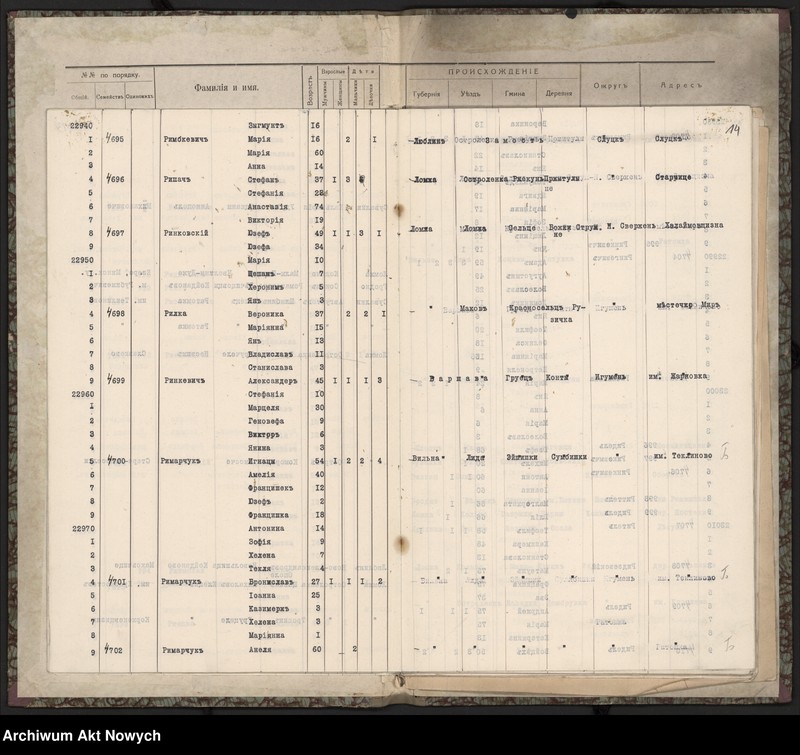 №№ по порядку.
Общій. Семействъ Одинокихъ
Фамилія и имя.
Возрастъ
Взрослые Дѣти
Мужчины Женщины Мальчики Дѣвочки
ПРОИСХОЖДЕНІЕ
Губернія Уѣздъ Гмина Деревня
Округъ Адресъ
14
22940 Зыгмунтъ 16
1 4695 Римкевичъ Марія 16 2 1 Люблинъ Замостъ Слуцкъ Слуцкъ
2 Марія 60
3 Анна 14
4 4696 Рипачъ Стефанъ 37 1 3 Ломжа Остроленка Рзекунь " Старице
5 Стефанія 28
6 Анастазія 74
7 Викторія 19
8 4697 Ринковскій Юзефъ 49 1 1 3 1 Ломжа Ломжа Сельце Н. Свержень Халаймовщизна
9 Юзефа 34
22950 Марія 10
1 Щепанъ 7
2 Херонимъ 5
3 Янъ 3
4 4698 Рилка Вероника 37 2 2 1 " Маковъ Красносельцъ Ру-
вичка " мѣстечко Миръ
5 Маріянна 15
6 Янъ 13
7 Владиславъ 11
8 Станислава 3
9 4699 Ринкевичъ Александеръ 45 1 1 1 3 Варшава Груецъ Конты Игуменъ им. Жарновка
22960 Стефанія 10
1 Марцеля 30
2 Геновефа 9
3 Викторъ 6
4 Янина 3
5 4700 Римарчукъ Игнацы 54 1 2 2 4 Вильна Лида Эйшишки " им. Теклиново
6 Амелія 40
7 Францишекъ 12
8 Юзефъ 2
9 Францишка 18
22970 Антонина 14
1 Зофія 9
2 Хелена 7
3 Текля 4
4 4701 Римарчукъ Брониславъ 27 1 1 1 2 " " " " " "
5 Іоанна 25
6 Казимеръ 3
7 Хелена 3
8 Маріянна 1
9 4702 Римарчукъ Анеля 60 2 " " " " " "
Archiwum Akt Nowych